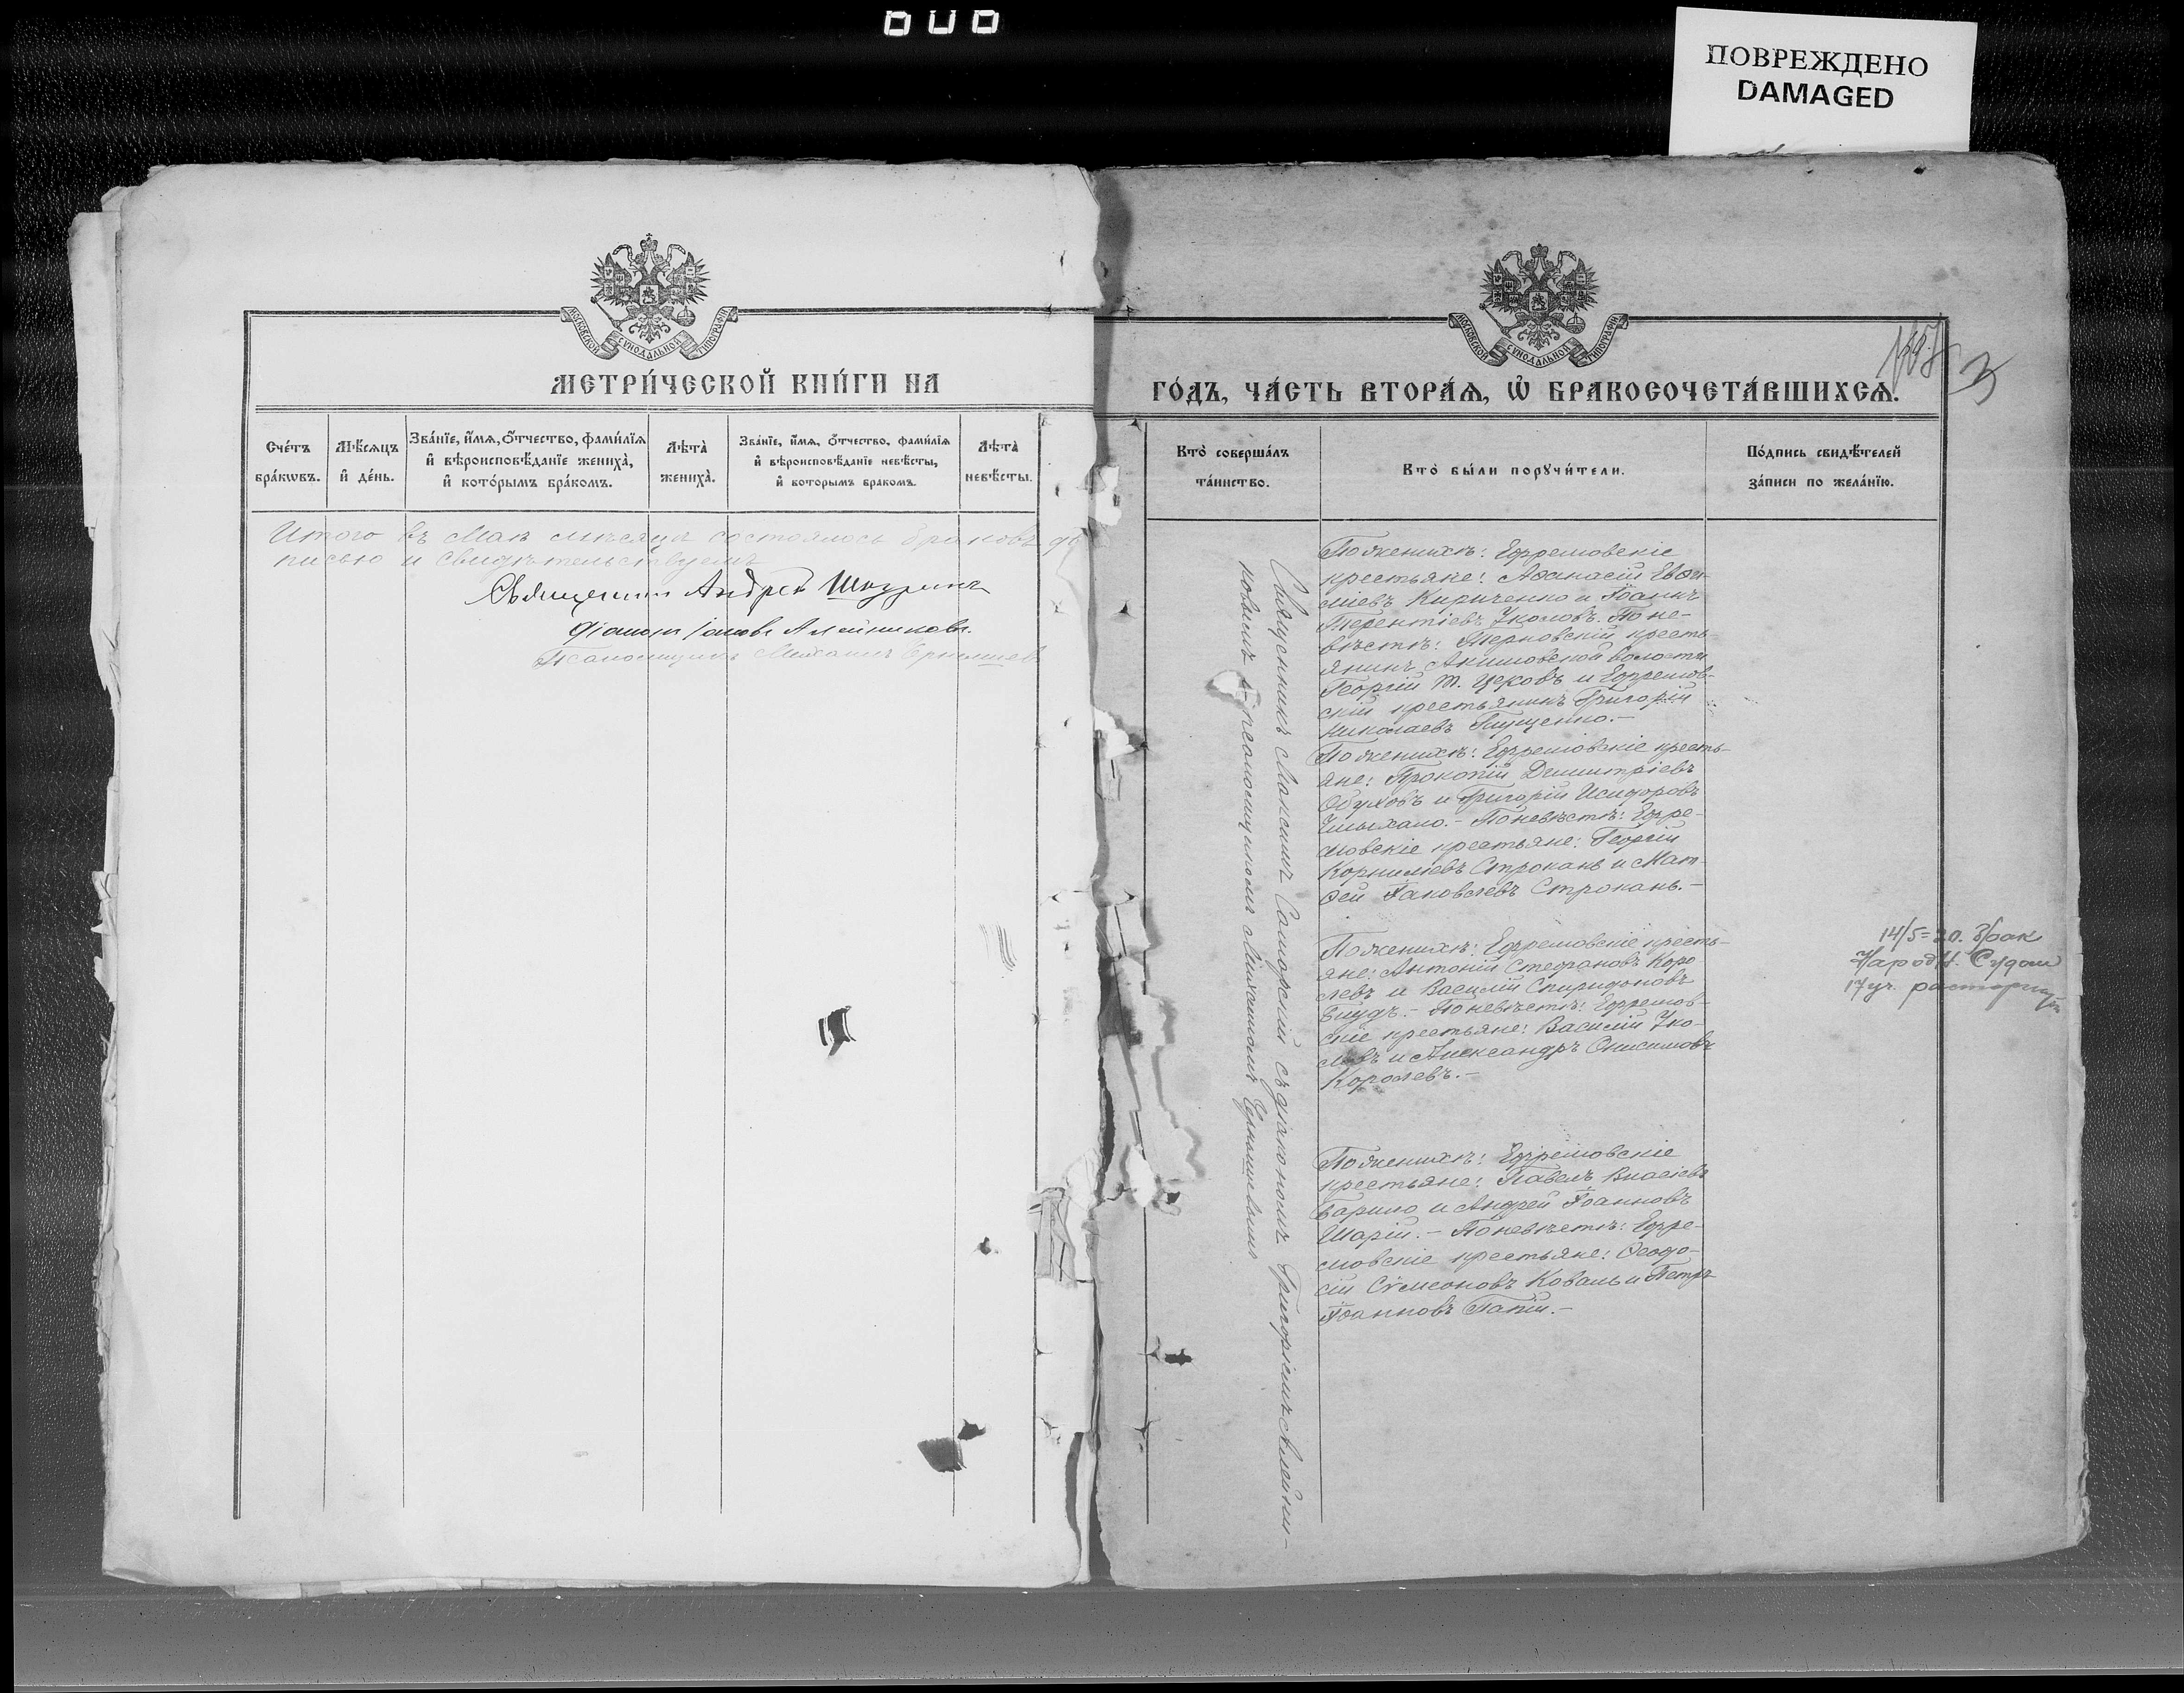 606
ПОВРЕЖДЕНО
DAMAGED
МОСКОВСКОЙ СѴНОДАЛЬНОЙ ТИПОГРАФІИ
МЕТРИ́ЧЕСКОЙ КНИ́ГИ НА
Сче́тъ бра́кѡвъ.
Мѣ́сяцъ и҆ де́нь.
Зва́нїе, и҆́мѧ, ѻ҆́тчество, фами́лїѧ и҆ вѣроисповѣ́данїе жениха̀, и҆ кото́рымъ бра́комъ.
Лѣта̀ жениха̀.
Зва́нїе, и҆́мѧ, ѻ҆́тчество, фами́лїѧ и҆ вѣроисповѣ́данїе невѣ́сты, и҆ которымъ бракомъ.
Лѣта̀ невѣ́сты.
Итого въ Маѣ мѣсяцѣ состоялось браковъ
писью и свидѣтельствуемъ
Священникъ Андрей
Діаконъ Алейниковъ.
Псаломщикъ Михаилъ
МОСКОВСКОЙ СѴНОДАЛЬНОЙ ТИПОГРАФІИ
3
ГО́ДЪ, ЧА́СТЬ ВТОРА́Ѧ, Ѡ҆ БРАКОСОЧЕТА́ВШИХСѦ.
Кто̀ соверша́лъ та́инство.
Кто̀ бы́ли порꙋчи́тели.
По́дпись свидѣ́телей за́писи по жела́нїю.
Священникъ Максимъ Самарскій съ діакономъ Григоріемъ Алейни-
ковымъ и псаломщикомъ Михаиломъ Чернышевымъ
По женихѣ: Ефремовскіе
крестьяне: Аѳанасій Евѳи-
міевъ Кириченко и Іоаннъ
Терентіевъ Уколовъ. По не-
вѣстѣ: Терновскій кресть-
янинъ Акимовской волости
Георгій Т. и Ефремов-
скій крестьянинъ Григорій
Николаевъ Тищенко.-
По женихѣ: Ефремовскіе кресть-
яне: Прокопій Димитріевъ
Обуховъ и Григорій Исидоровъ
Чмыхало.- По невѣстѣ: Ефре-
мовскіе крестьяне: Георгій
Корниліевъ Строкань и Мат-
ѳей Іаковлевъ Строкань.-
По женихѣ: Ефремовскіе кресть-
яне: Антоній Стефановъ Коро
левъ и Василій Спиридоновъ
По невѣстѣ: Ефремов-
скіе крестьяне: Василій Уко-
ловъ и Александръ Онисимовъ
Королевъ.-
14/5=20. Брак
Народн. Судом
17 уч. расторгнут
По женихѣ: Ефремовскіе
крестьяне: Павелъ Власіевъ
Барило и Андрей Іоанновъ
Шарій.- По невѣстѣ: Ефре-
мовскіе крестьяне: Ѳеодо-
сій Сѵмеоновъ Коваль и Петръ
Іоанновъ Папій.-